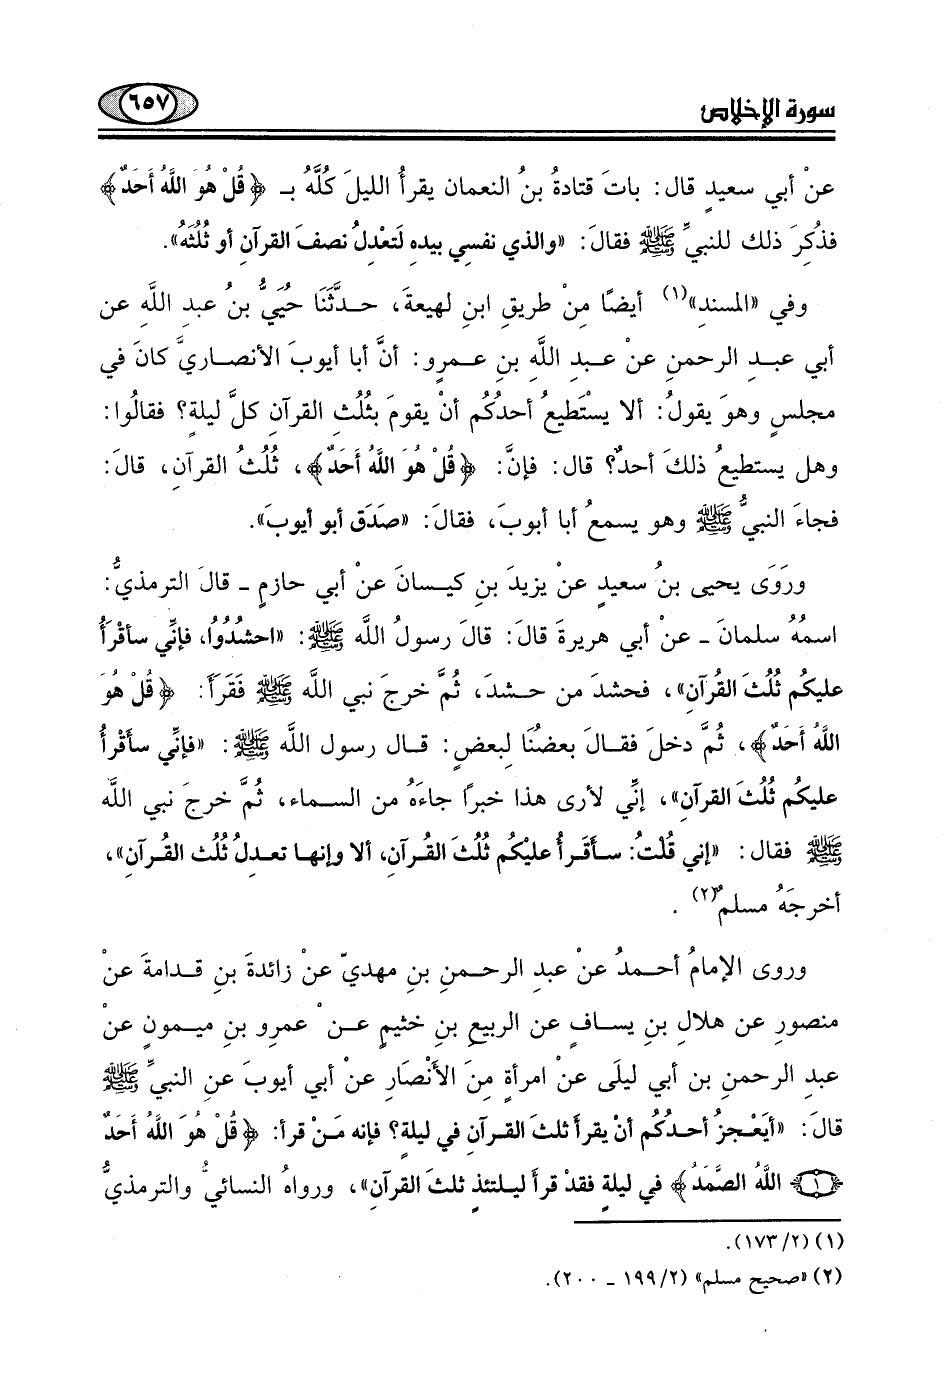 سورة الإخلاص
٦٥٧
عنْ أبي سعيدٍ قال: باتَ قتادةُ بنُ النعمان يقرأُ الليلَ كُلَّهُ بـ ﴿قُلْ هُوَ اللَّهُ أَحَدٌ﴾
فذُكِرَ ذلك للنبيِّ ﷺ فقالَ: «والذي نفسي بيده لَتعْدلُ نصفَ القرآنِ أو ثُلُثَهُ».
وفي «المسندِ»(١) أيضًا مِنْ طريقِ ابنِ لهيعةَ، حـدَّثَنَا حُيَيُّ بنُ عبدِ اللَّه عن
أبي عبـدِ الرحمنِ عنْ عبـدِ اللَّهِ بنِ عـمرٍو: أنَّ أبا أيوبَ الأنصـاريَّ كانَ في
مجلسٍ وهوَ يقولُ: ألا يسْتطيعُ أحدُكُم أنْ يقومَ بثُلُثِ القرآنِ كلَّ ليلة؟ فقالُوا:
وهل يستطيعُ ذلكَ أحدٌ؟ قال: فإنَّ: ﴿قُلْ هُوَ اللَّهُ أَحَدٌ﴾، ثُلُثُ القرآنِ، قالَ:
فجاءَ النبيُّ ﷺ وهو يسمعُ أبا أيوبَ، فقالَ: «صَدَق أبو أيوبَ».
ورَوَى يحيى بنُ سعيدٍ عنْ يزيدَ بنِ كيـسانَ عنْ أبي حازمٍ ـ قالَ الترمذيُّ:
اسمهُ سلمانَ ـ عنْ أبي هريرةَ قالَ: قالَ رسولُ اللَّه ﷺ: «احشدُوُا، فإنِّي سأقْرَأُ
عليكُم ثُلُثَ القُرآنِ»، فحشدَ من حـشدَ، ثُمَّ خرجَ نبي اللَّه ﷺ فَقَرَأَ: ﴿قُلْ هُوَ
اللَّهُ أَحَدٌ﴾، ثُمَّ دخلَ فقـالَ بعضُنَا لبعضٍ: قـال رسول اللَّه ﷺ: «فإنِّي سأَقْرأُ
عليكم ثُلُثَ القرآنِ»، إنِّي لأرى هذا خبرًا جاءَهُ من السـماء، ثُمَّ خرجَ نبي اللَّه
ﷺ فقال: «إني قُلْتُ: سـأقَـرأُ عليْكُم ثُلُثَ القـرآنِ، ألا وإنهـا تعـدلُ ثُلُثَ القُرآنِ»،
أخرجَهُ مسلمٌ(٢).
وروى الإمامُ أحـمدُ عنْ عبدِ الرحـمنِ بنِ مهديّ عنْ زائدةَ بنِ قـدامةَ عنْ
منصورِ عن هلالِ بنِ يسافٍ عن الربيعِ بنِ خثيمٍ عـنْ عمرِو بنِ ميـمونٍ عنْ
عبدِ الرحمنِ بنِ أبي ليلَى عنْ امرأةٍ مِنَ الأَنْصَارِ عنْ أبي أيوبَ عن النبيِّ ﷺ
قالَ: «أيَعْـجزُ أحـدُكُم أنْ يقرأ ثلثَ القـرآنِ في ليلة؟ فإنه مَـنْ قرأَ: ﴿قُلْ هُوَ اللَّهُ أَحَدٌ
﴿١﴾ اللَّهُ الصَّمَدُ﴾ في ليلةٍ فقدْ قرأَ ليـلتئذٍ ثلثَ القرآنِ»، ورواهُ النسائيُّ والترمذيُّ
(١) (٢/ ١٧٣).
(٢) «صحيح مسلم» (٢/ ١٩٩ ـ ٢٠٠).